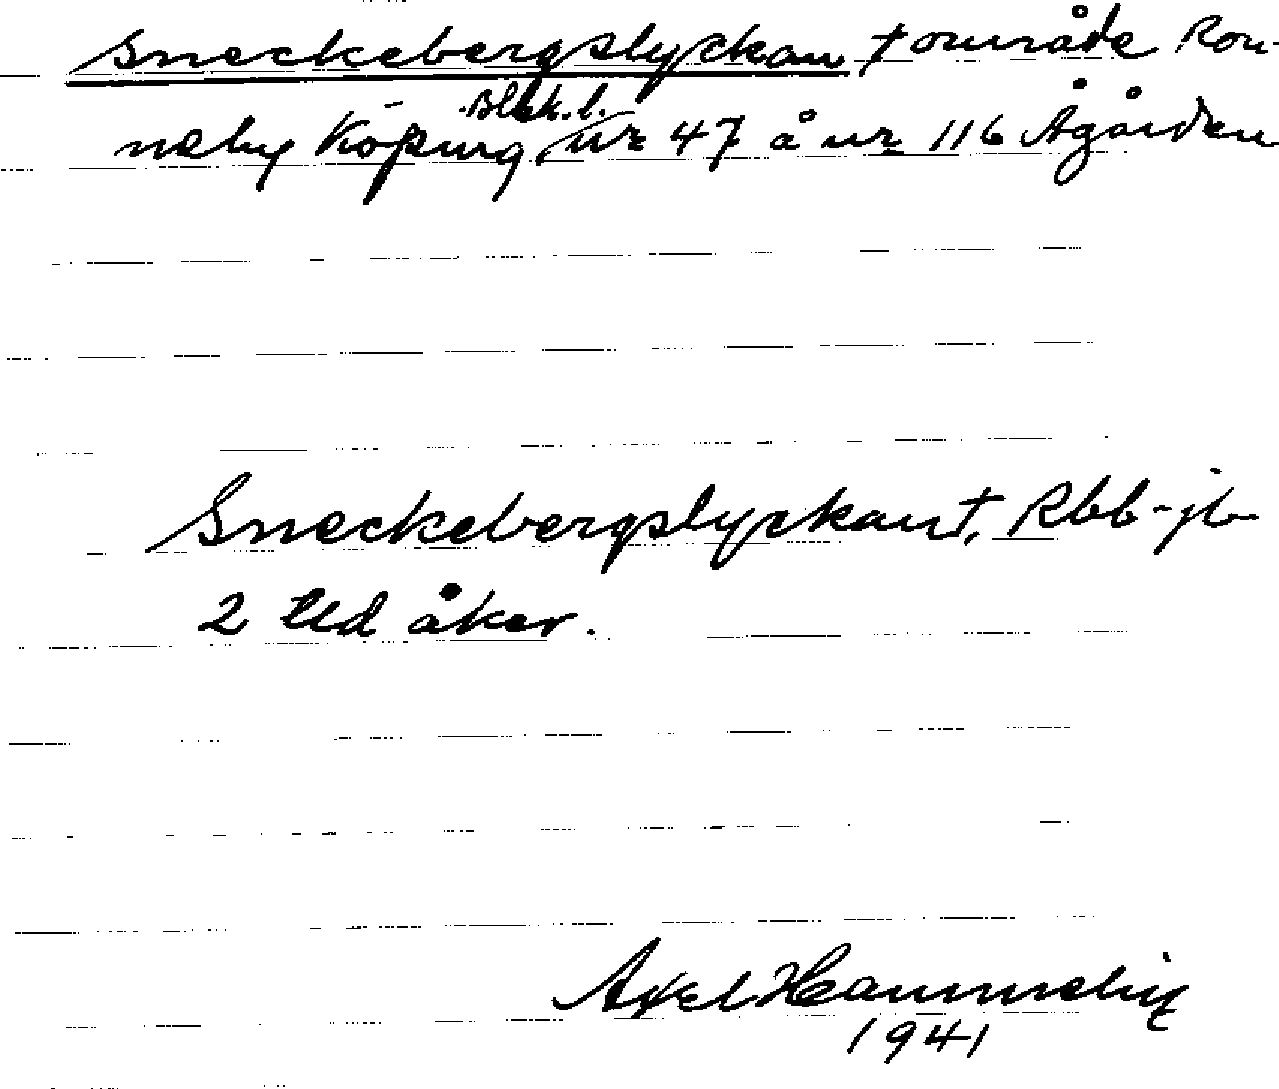 Sneckebergslyckan † område Ron-
neby Köping, Blek. l. nr 47 å nr 116 Ågården
Sneckebergslyckan †, Rbb-jb
2 tld åker.
Axel
1941